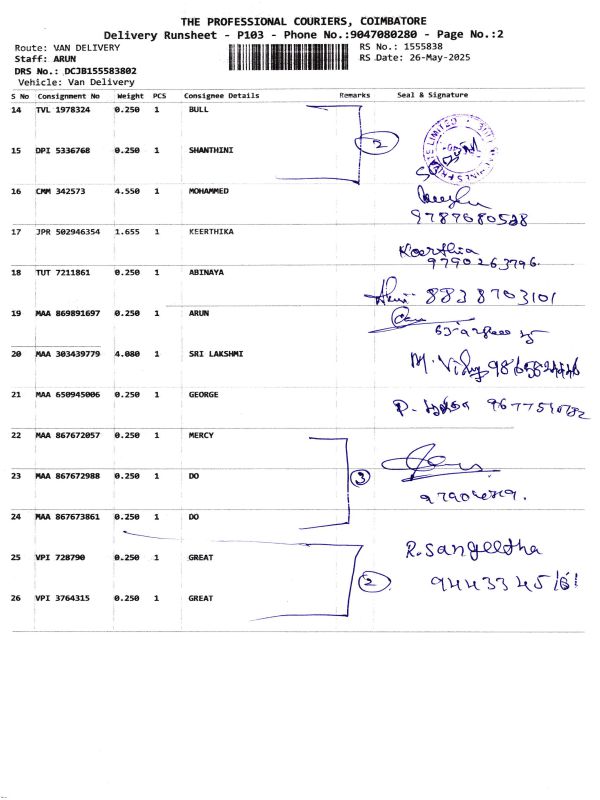 THE PROFESSIONAL COURIERS, COIMBATORE
Delivery Runsheet - P103 - Phone No.:9047080280 - Page No.:2
Route: VAN DELIVERY RS No.: 1555838
Staff: ARUN RS Date: 26-May-2025
DRS No.: DCJB155583802
Vehicle: Van Delivery
S No Consignment No Weight PCS Consignee Details Remarks Seal & Signature
14 TVL 1978324 0.250 1 BULL
2
15 DPI 5336768 0.250 1 SHANTHINI
16 CMM 342573 4.550 1 MOHAMMED
9789680528
17 JPR 502946354 1.655 1 KEERTHIKA
Keerthia
9790263796.
18 TUT 7211861 0.250 1 ABINAYA
8838703101
19 MAA 869891697 0.250 1 ARUN
20 MAA 303439779 4.080 1 SRI LAKSHMI
M.
21 MAA 650945006 0.250 1 GEORGE
P.
22 MAA 867672057 0.250 1 MERCY
23 MAA 867672988 0.250 1 DO
3
24 MAA 867673861 0.250 1 DO
R. Sangeetha
25 VPI 728790 0.250 1 GREAT
2
26 VPI 3764315 0.250 1 GREAT